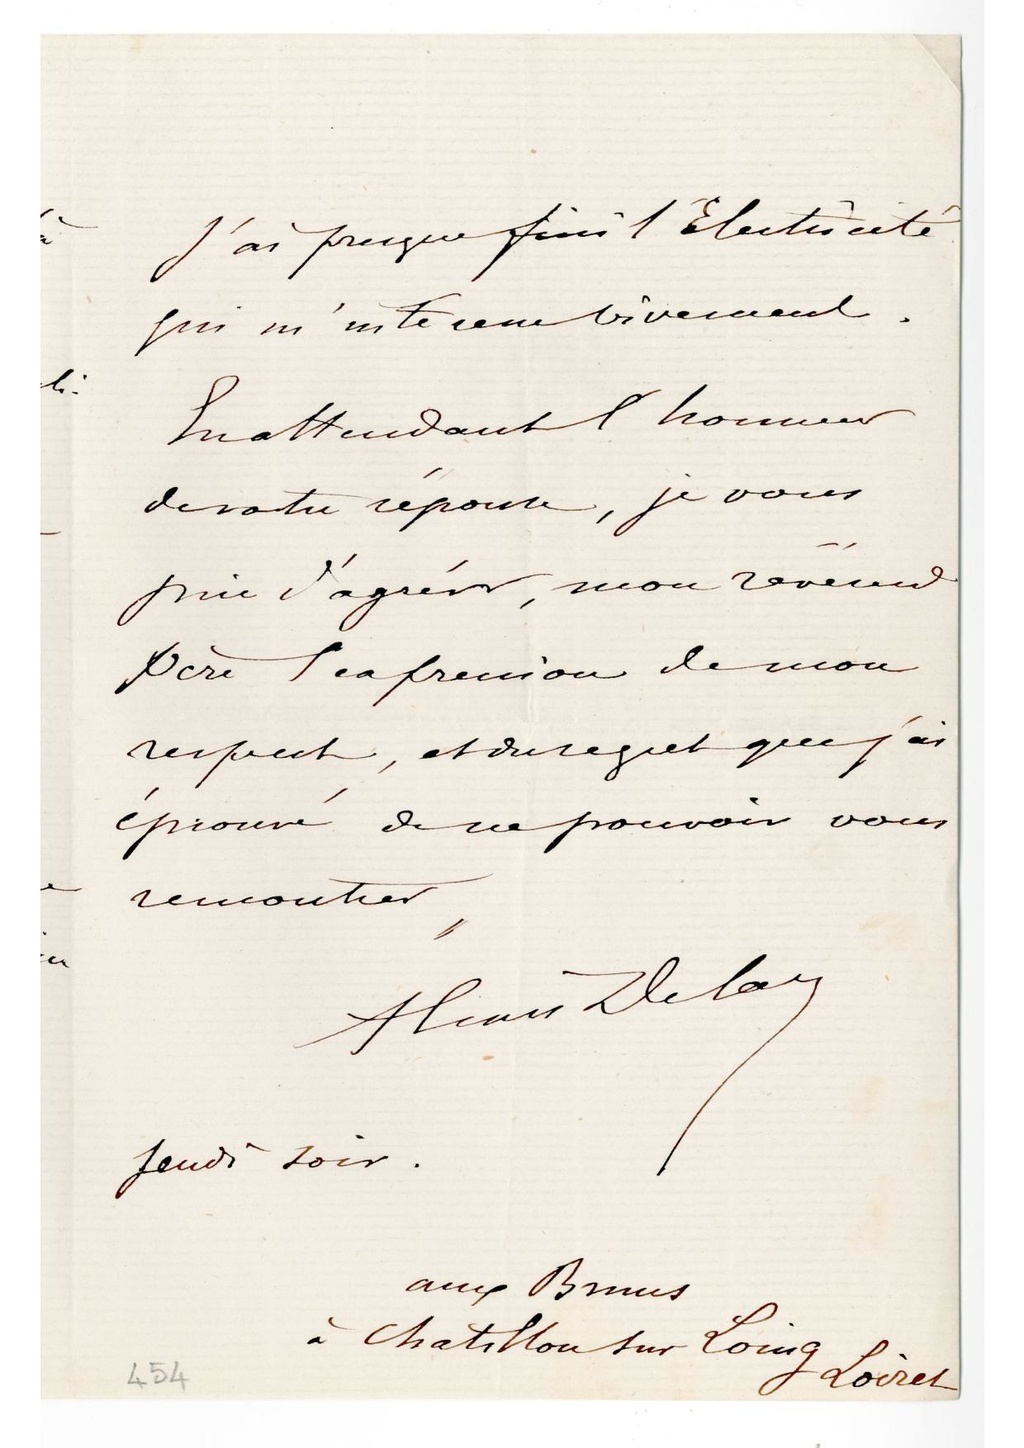 J'ai presque fini l'Électricité
qui m'intéresse vivement.
En attendant l'honneur
de votre réponse, je vous
prie d'agréer, mon révérend
Père l'expression de mon
respect, et du regret que j'ai
éprouvé de ne pouvoir vous
remontrer
Delay
Jeudi soir.
aux Brunus
à Chatillon sur Loing
Loiret
454